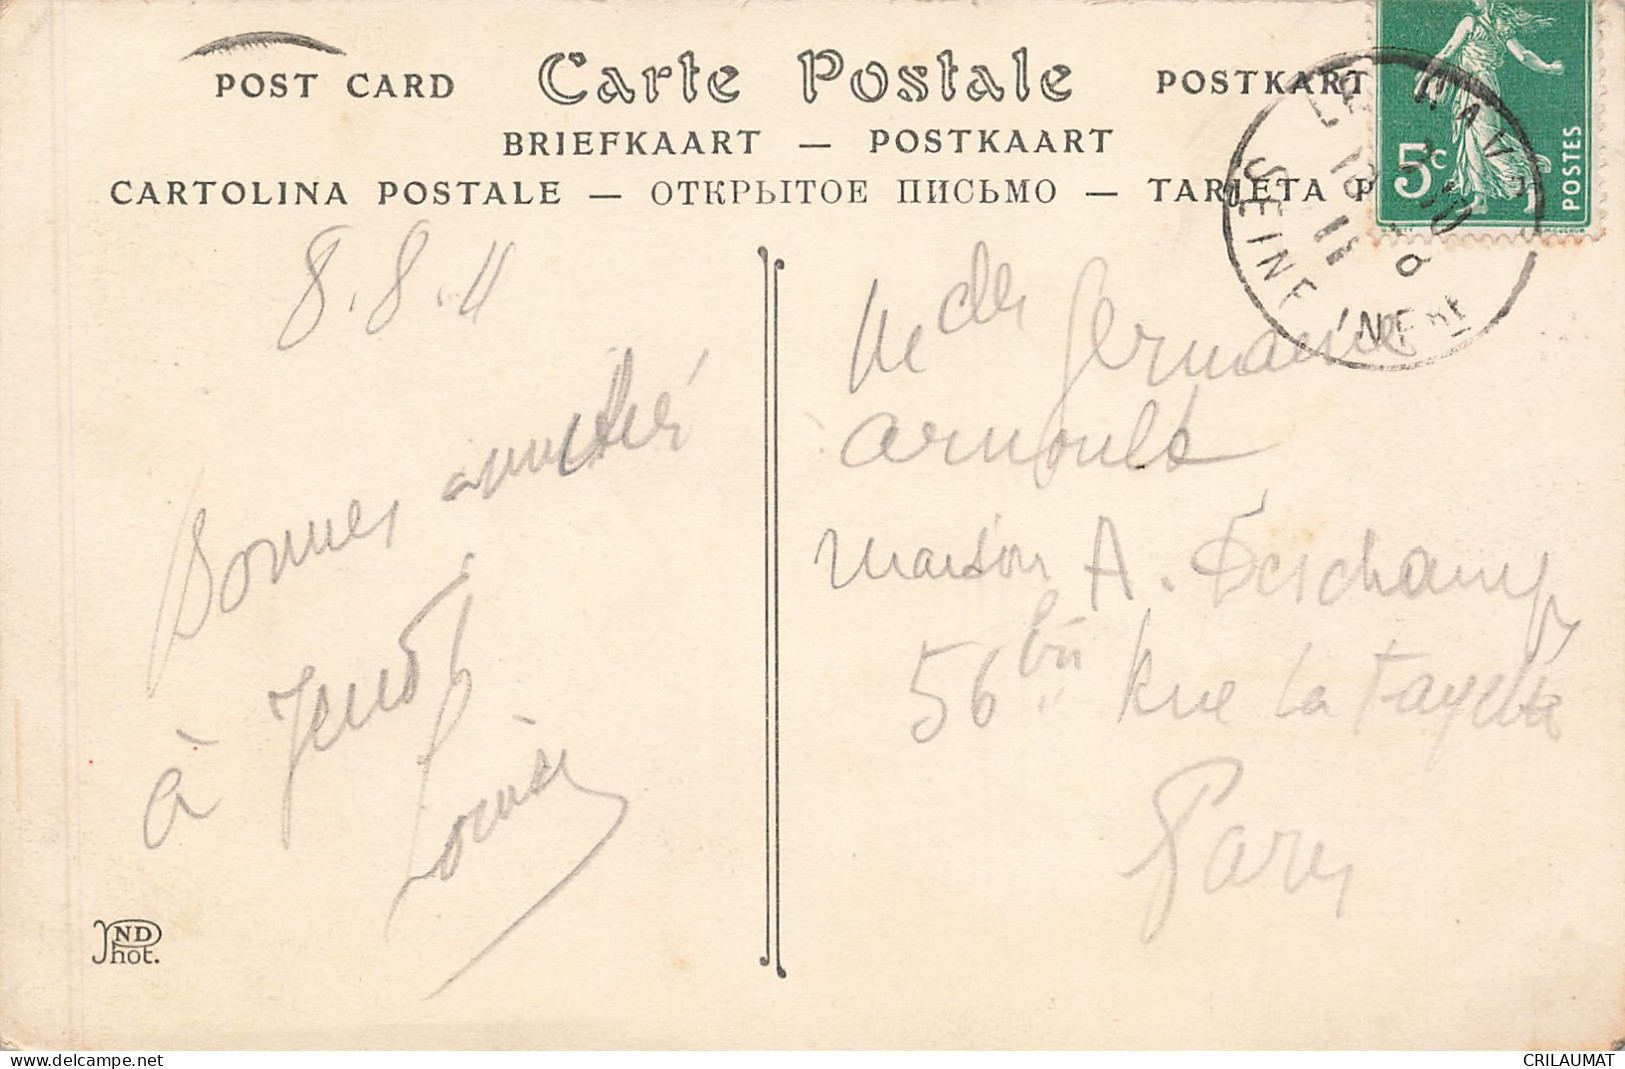 POST CARD Carte Postale POSTKART
BRIEFKAART — POSTKAART
CARTOLINA POSTALE — ОТКРЫТОЕ ПИСЬМО — TARJETA P
5c POSTES
LE HAVRE
SEINE INFRE
8.8.11
Bonnes amitiés
à
Louise
Melle Germaine
Arnoult
Maison A. Deschamps
56 bis Rue La Fayette
Paris
ND
Phot.
www.delcampe.net
CRILAUMAT